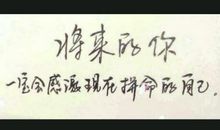 将来的你
一定会感激现在拼命的自己.